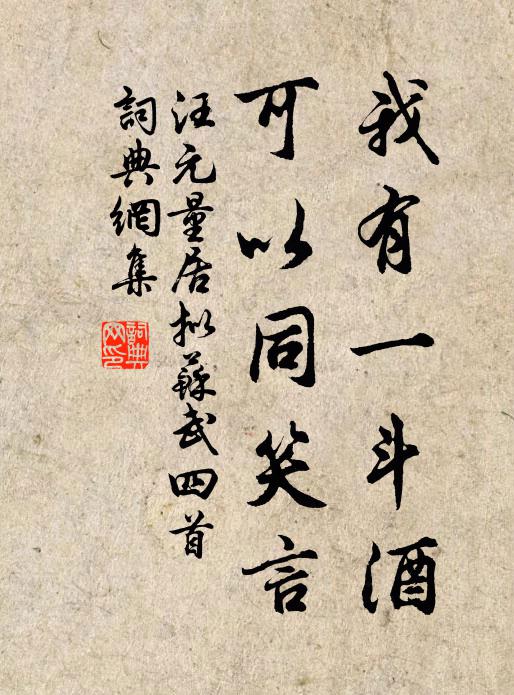 我有一斗酒
可以同笑言
汪元量居拟蘇武四首
詞典網集
詞典網印